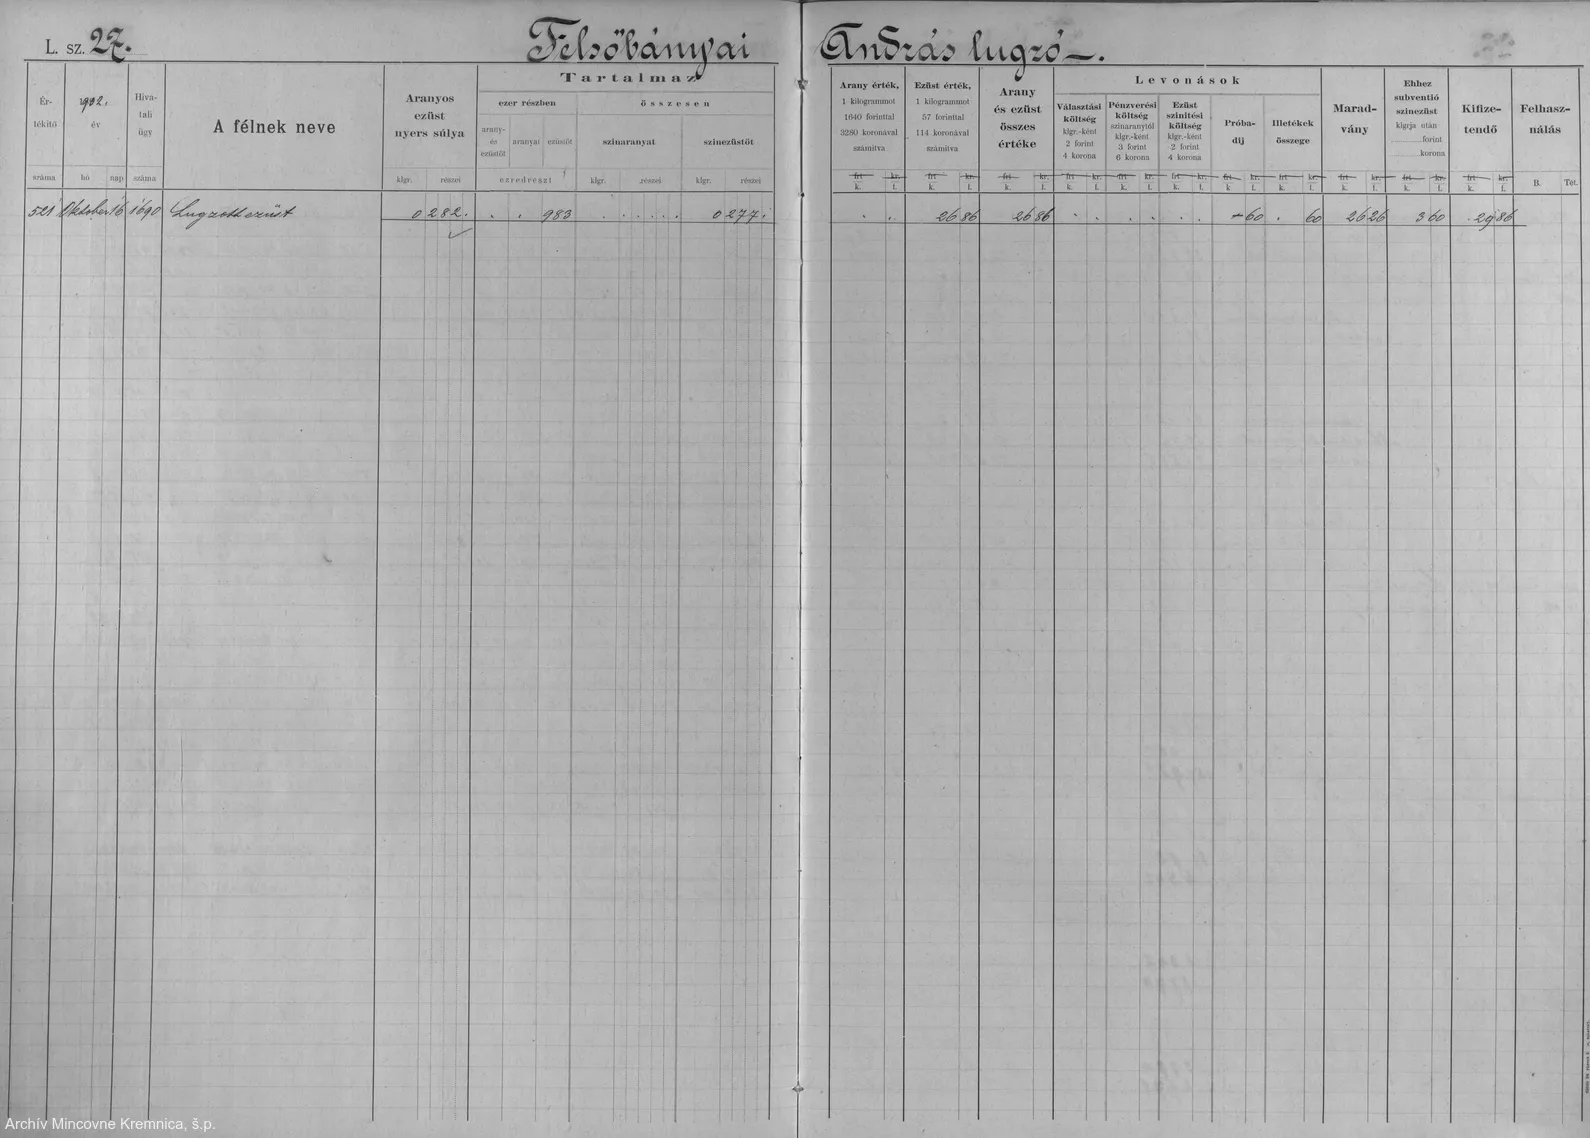 L. sz. 27.
Felsőbányai András lugzó —.
Értékítő száma
1902. év hó nap
Hivatali ügy száma
A félnek neve
Aranyos ezüst nyers súlya
klgr. részei
Tartalmaz
ezer részben
arany- és ezüstöt aranyat ezüstöt
ezredrészt
összesen
szinaranyat
klgr. részei
szinezüstöt
klgr. részei
Arany érték, 1 kilogrammot 1640 forinttal 3280 koronával számítva
frt kr.
k. f.
Ezüst érték, 1 kilogrammot 57 forinttal 114 koronával számítva
frt kr.
k. f.
Arany és ezüst összes értéke
frt kr.
k. f.
Levonások
Választási költség klgr.-ként 2 forint 4 korona
frt kr.
k. f.
Pénzverési költség szinaranytól klgr.-ként 3 forint 6 korona
frt kr.
k. f.
Ezüst szinitési költség klgr.-ként 2 forint 4 korona
frt kr.
k. f.
Próbadíj
frt kr.
k. f.
Illetékek összege
frt kr.
k. f.
Maradvány
frt kr.
k. f.
Ehhez subventió szinezüst klgrja után forint korona
frt kr.
k. f.
Kifizetendő
frt kr.
k. f.
Felhasználás
B. Tét.
521 Oktober 16 1690 Lugzott ezüst 0 282. . . 983 . . . . . . 0 277. . . . 26 86 26 86 . . . . . . — 60 . 60 26 26 3 60 . 29 86
Archív Mincovne Kremnica, š.p.